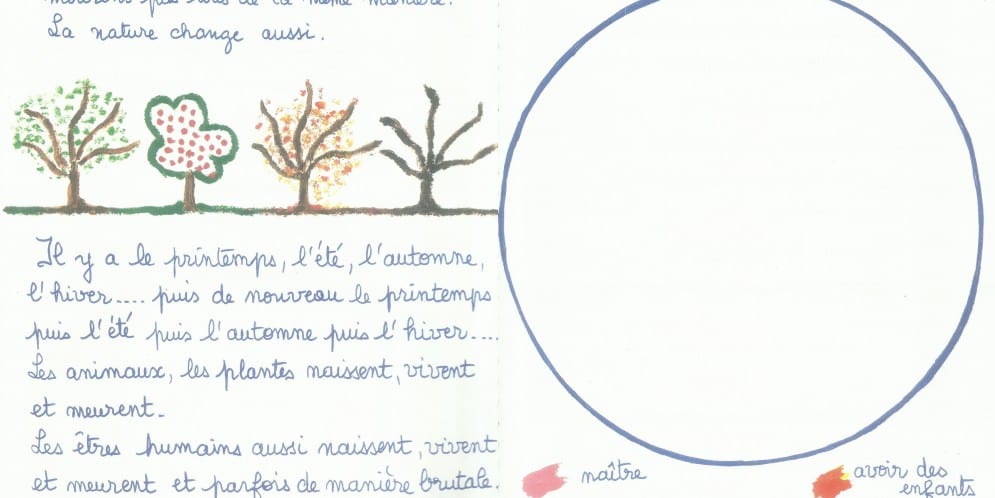 de la même manière.
La nature change aussi.
Il y a le printemps, l'été, l'automne,
l'hiver.... puis de nouveau le printemps
puis l'été puis l'automne puis l'hiver....
Les animaux, les plantes naissent, vivent
et meurent.
Les êtres humains aussi naissent, vivent
et meurent et parfois de manière brutale.
naître
avoir des
enfants